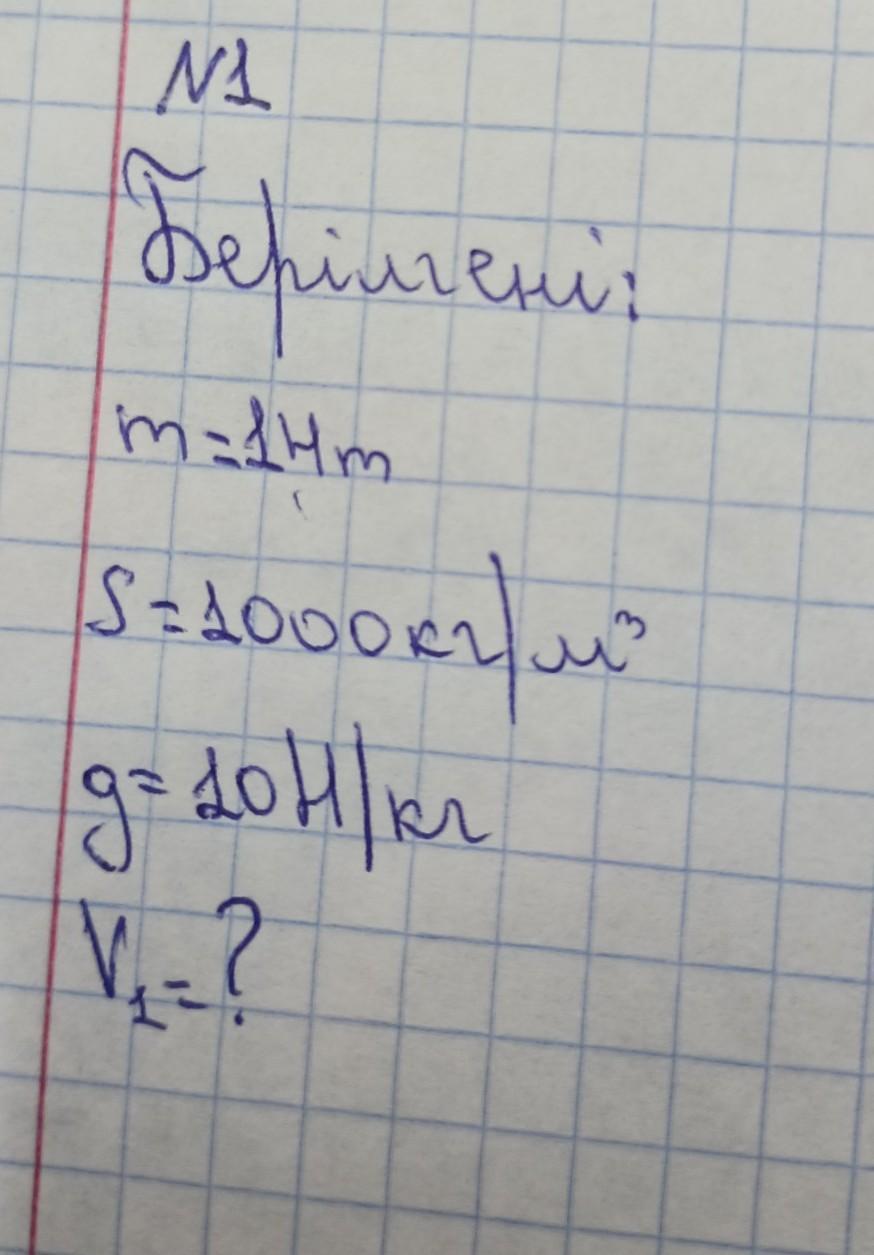 N1
Берілгені:
m=14т
S=1000кг/м³
g=10Н/кг
V₁=?